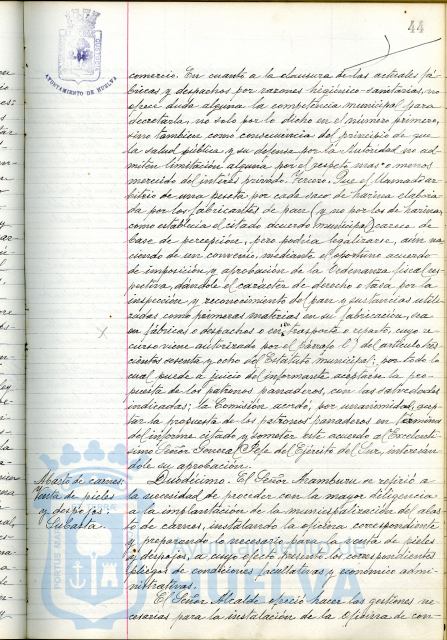 44
AYUNTAMIENTO DE HUELVA
comercio. En cuanto a la clausura de las actuales fá-
bricas y despachos por razones higiénico-sanitarias, no
ofrece duda alguna la competencia municipal para
decretarla, no solo por lo dicho en el número primero,
sino tambien como consecuencia del principio de que
la salud pública y su defensa por la Autoridad no ad-
miten limitación alguna por el respeto mas o menos
merecido del interés privado. Tercero. Que el llamado ar-
bitrio de una peseta por cada saco de harina elabora-
da por los fabricantes de pan (y no por los de harina,
como establecia el citado acuerdo municipal) carece de
base de percepción, pero podría legalizarse, aún na-
ciendo de un convenio, mediante el oportuno acuerdo
de imposición y aprobación de la Ordenanza fiscal res-
pectiva, dándole el carácter de derecho o tasa por la
inspección y reconocimiento del pan y sustancias utili-
zadas como primeras materias en su fabricación, sea
en fábricas o despachos o en su trasporte o reparto, cuyo re-
curso viene autorizado por el párrafo l) del artículo tres-
cientos sesenta y ocho del Estatuto municipal; por todo lo
cual puede a juicio del informante aceptarse la pro-
puesta de los patronos panaderos, con las salvedades
indicadas; la Comisión acordó, por unanimidad, acep-
tar la propuesta de los patronos panaderos en términos
del informe citado y someter este acuerdo al Excelentí-
simo Señor General Jefe del Ejército del Sur, interesán-
dole su aprobación.
Abasto de carnes.
Venta de pieles
y despojos.
Subasta.
Duodécimo. El Señor Aramburu se refirió a
la necesidad de proceder con la mayor diligencia
a la implantación de la municipalización del abas-
to de carnes, instalando la oficina correspondiente
y preparando lo necesario para la venta de pieles
y despojos, a cuyo efecto presentó los correspondientes
pliegos de condiciones facultativas y económico admi-
nistrativas.
El Señor Alcalde ofreció hacer las gestiones ne-
cesarias para la instalación de la Oficina de con-